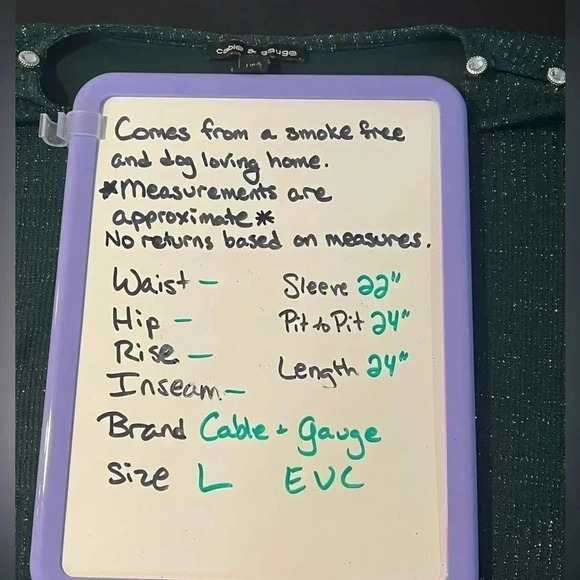 cable & gauge
Comes from a smoke free
and dog loving home.
*Measurements are
approximate*
No returns based on measures.
Waist -
Hip -
Rise -
Inseam -
Sleeve 22"
Pit to Pit 24"
Length 24"
Brand Cable + Gauge
Size L EUC